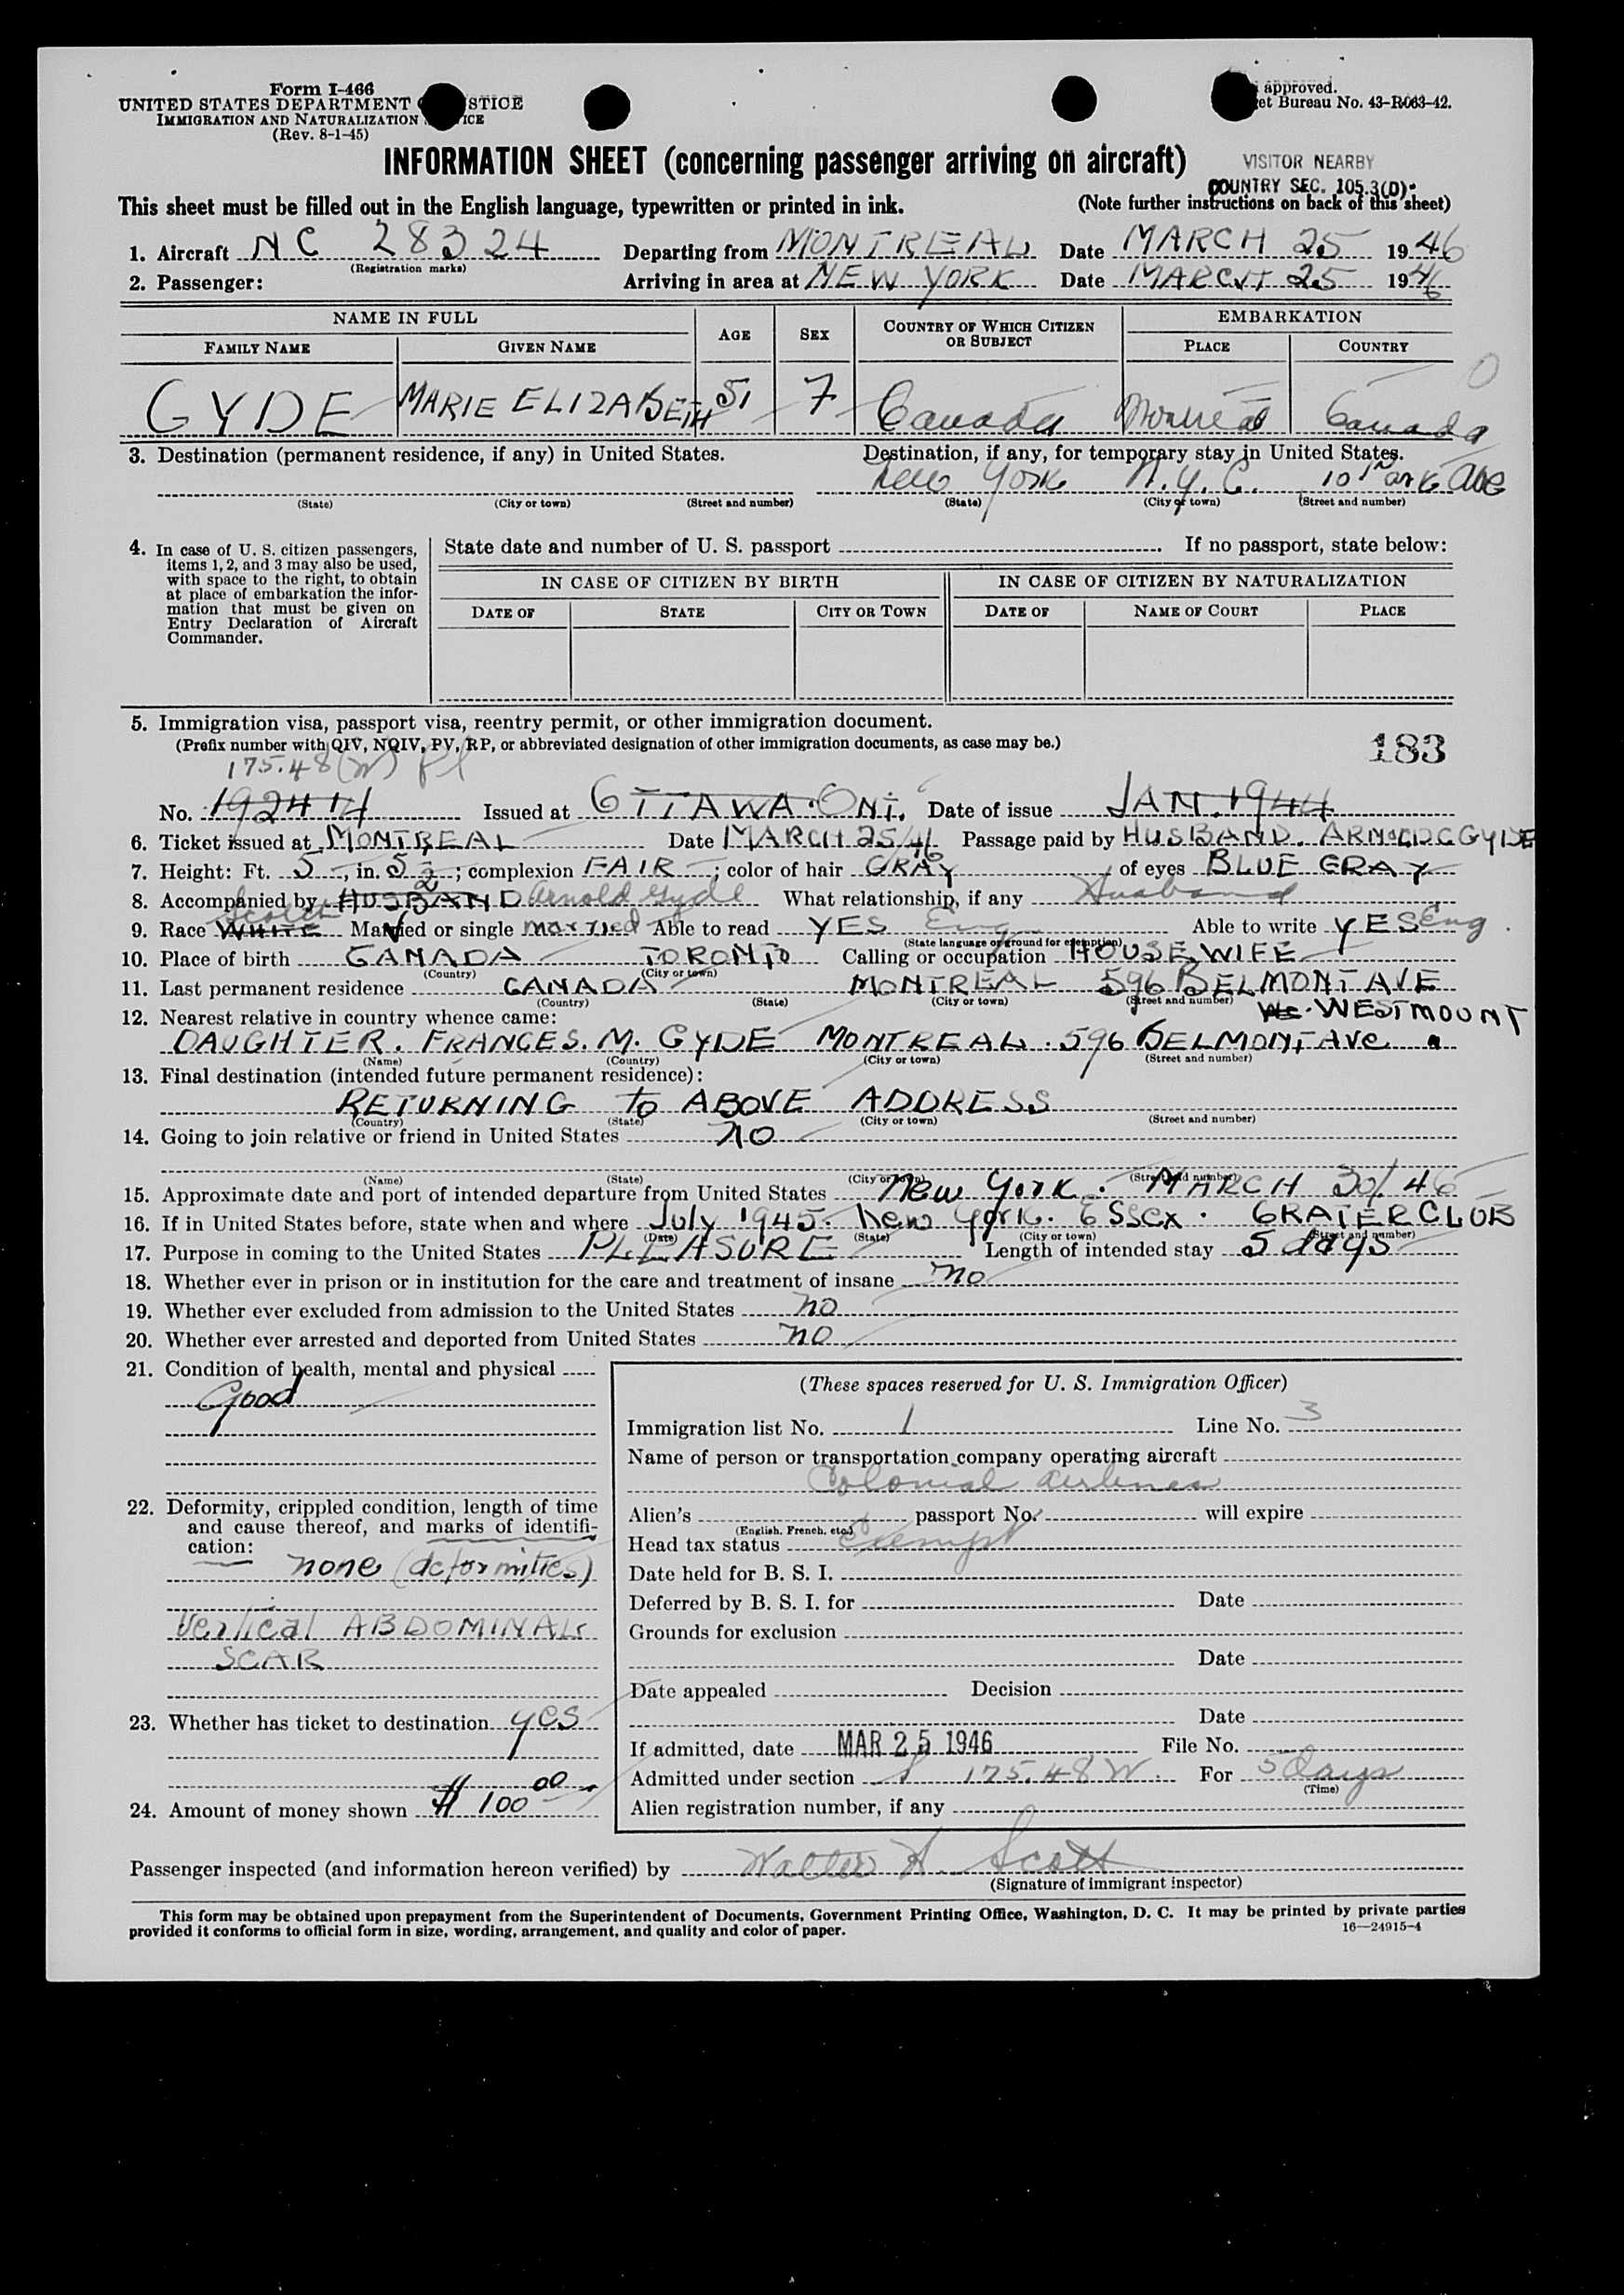 Form I-466
UNITED STATES DEPARTMENT STICE
IMMIGRATION AND NATURALIZATION ICE
(Rev. 8-1-45)
approved.
et Bureau No. 43-R063-42.
INFORMATION SHEET (concerning passenger arriving on aircraft)
VISITOR NEARBY
COUNTRY SEC. 105.3(D)
This sheet must be filled out in the English language, typewritten or printed in ink. (Note further instructions on back of this sheet)
1. Aircraft NC 28324 Departing from MONTREAL Date MARCH 25 1946
(Registration marks)
2. Passenger: Arriving in area at NEW YORK Date MARCH 25 1946
NAME IN FULL AGE SEX COUNTRY OF WHICH CITIZEN OR SUBJECT EMBARKATION
FAMILY NAME GIVEN NAME PLACE COUNTRY
GYDE MARIE ELIZABETH 51 F Canada Montreal Canada
3. Destination (permanent residence, if any) in United States. Destination, if any, for temporary stay in United States.
New York N.Y.C. 10 Park Ave
(State) (City or town) (Street and number) (State) (City or town) (Street and number)
4. In case of U. S. citizen passengers, items 1, 2, and 3 may also be used, with space to the right, to obtain at place of embarkation the information that must be given on Entry Declaration of Aircraft Commander.
State date and number of U. S. passport . If no passport, state below:
IN CASE OF CITIZEN BY BIRTH IN CASE OF CITIZEN BY NATURALIZATION
DATE OF STATE CITY OR TOWN DATE OF NAME OF COURT PLACE
5. Immigration visa, passport visa, reentry permit, or other immigration document.
(Prefix number with QIV, NQIV, PV, RP, or abbreviated designation of other immigration documents, as case may be.)
183
175.48(W) Pl
No. 192414 Issued at OTTAWA. ONT. Date of issue JAN. 1944
6. Ticket issued at MONTREAL Date MARCH 25/46 Passage paid by HUSBAND. ARNOLD C GYDE
7. Height: Ft. 5, in. 5 1/2; complexion FAIR; color of hair GRAY of eyes BLUE GRAY
8. Accompanied by HUSBAND Arnold Gyde What relationship, if any Husband
Scotch
9. Race WHITE Married or single married Able to read YES Eng Able to write YES Eng
(State language or ground for exemption)
10. Place of birth CANADA TORONTO Calling or occupation HOUSE WIFE
(Country) (City or town)
11. Last permanent residence CANADA MONTREAL 596 BELMONT AVE
(Country) (State) (City or town) (Street and number)
WESTMOUNT
12. Nearest relative in country whence came:
DAUGHTER. FRANCES. M. GYDE MONTREAL. 596 BELMONT AVE
(Name) (Country) (City or town) (Street and number)
13. Final destination (intended future permanent residence):
RETURNING TO ABOVE ADDRESS
(Country) (State) (City or town) (Street and number)
14. Going to join relative or friend in United States NO
(Name) (State) (City or town) (Street and number)
15. Approximate date and port of intended departure from United States New York. MARCH 30/46
16. If in United States before, state when and where July 1945. New York. ESSEX. CRATER CLUB
(Date) (State) (City or town) (Street and number)
17. Purpose in coming to the United States PLEASURE Length of intended stay 5 days
18. Whether ever in prison or in institution for the care and treatment of insane no
19. Whether ever excluded from admission to the United States no
20. Whether ever arrested and deported from United States no
21. Condition of health, mental and physical
Good
22. Deformity, crippled condition, length of time and cause thereof, and marks of identification:
none (deformities)
Vertical ABDOMINAL
SCAR
23. Whether has ticket to destination yes
24. Amount of money shown $ 100 00
(These spaces reserved for U. S. Immigration Officer)
Immigration list No. 1 Line No. 3
Name of person or transportation company operating aircraft
Colonial Airlines
Alien's passport No. will expire
(English, French, etc.)
Head tax status Exempt
Date held for B. S. I.
Deferred by B. S. I. for Date
Grounds for exclusion
Date
Date appealed Decision
Date
If admitted, date MAR 25 1946 File No.
Admitted under section 175.48 W. For 5 Days
(Time)
Alien registration number, if any
Passenger inspected (and information hereon verified) by Walter A. Scott
(Signature of immigrant inspector)
This form may be obtained upon prepayment from the Superintendent of Documents, Government Printing Office, Washington, D. C. It may be printed by private parties
provided it conforms to official form in size, wording, arrangement, and quality and color of paper. 16—24915-4